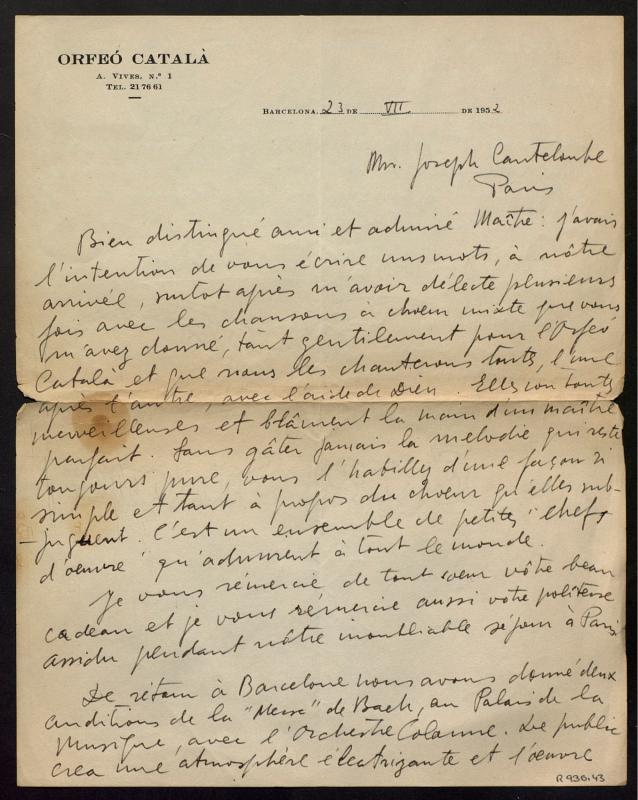 ORFEÓ CATALÀ
A. VIVES, N.º 1
TEL. 21 76 61
BARCELONA, 23 DE VII DE 1952
Mr. Joseph Canteloube
Paris
Bien distingué ami et admiré Maître: j'avais
l'intention de vous écrire uns mots, à nôtre
arrivée, surtot après m'avoir délecte plusieurs
fois avec les chansons à choeur mixte que vous
m'avez donné, tant gentilement pour l'Orfeó
Català et que nous les chanterons touts, l'une
après l'autre, avec l'aide de Dieu. Elles son touts
merveilleuses et blâment la main d'un maître
parfait. Sans gâter jamais la melodie qui reste
toujours pure, vous l'habillez d'une façon si
simple et tant à propos du choeur qu'elles sub-
-juguent. C'est un ensemble de petits "chefs
d'oeuvre" qu'admirent à tout le monde.
Je vous rémercie de tout coeur vôtre beau
cadeau et je vous rémercie aussi votre politesse
assidu pendant nôtre inoubliable séjour à Paris
De rétour à Barcelone nous avons donné deux
auditions de la "Messe" de Bach, au Palais de la
Musique, avec l'Orchestre Colonne. Le public
crea une atmosphère élèctrizante et l'oeuvre
R 930.43